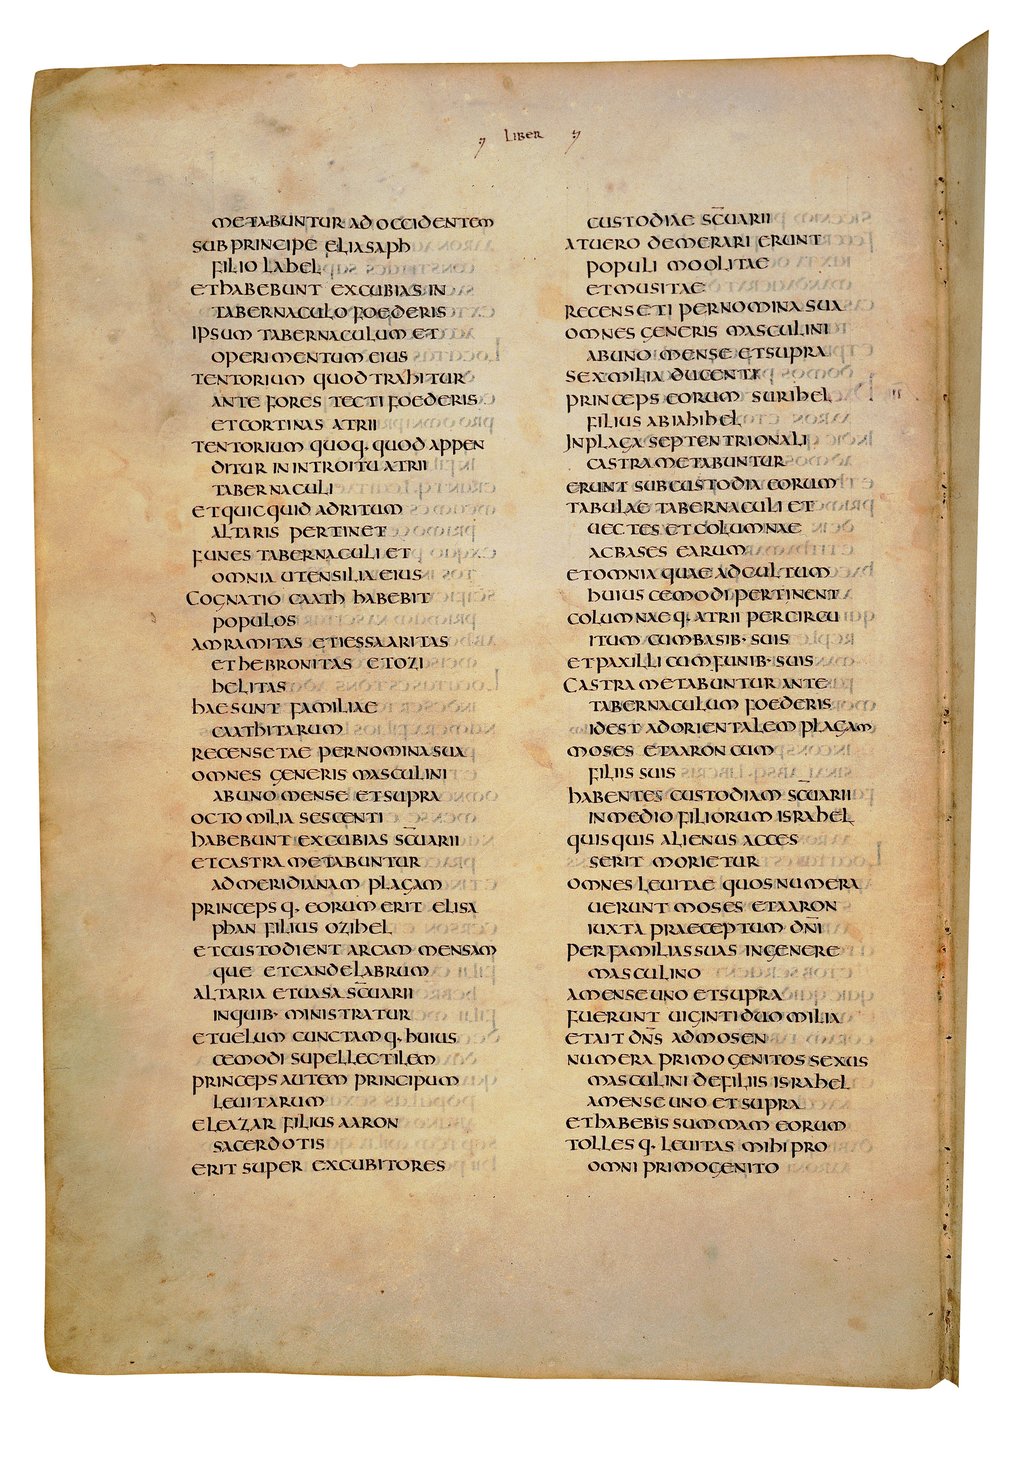 LIBER
METABUNTUR AD OCCIDENTEM
SUB PRINCIPE ELIASAPH
FILIO LAHEL
ET HABEBUNT EXCUBIAS IN
TABERNACULO FOEDERIS
IPSUM TABERNACULUM ET
OPERIMENTUM EIUS
TENTORIUM QUOD TRAHITUR
ANTE FORES TECTI FOEDERIS
ET CORTINAS ATRII
TENTORIUM QUOQ· QUOD APPEN
DITUR IN INTROITU ATRII
TABERNACULI
ET QUICQUID AD RITUM
ALTARIS PERTINET
FUNES TABERNACULI ET
OMNIA UTENSILIA EIUS
COGNATIO CAATH HABEBIT
POPULOS
AMRAMITAS ET IESSAARITAS
ET HEBRONITAS ET OZI
HELITAS
HAE SUNT FAMILIAE
CAATHITARUM
RECENSETAE PER NOMINA SUA
OMNES GENERIS MASCULINI
AB UNO MENSE ET SUPRA
OCTO MILIA SESCENTI
HABEBUNT EXCUBIAS SC̅UARII
ET CASTRA METABUNTUR
AD MERIDIANAM PLAGAM
PRINCEPSQ· EORUM ERIT ELISA
PHAN FILIUS OZIHEL
ET CUSTODIENT ARCAM MENSAM
QUE ET CANDELABRUM
ALTARIA ET UASA SC̅UARII
IN QUIB· MINISTRATUR
ET UELUM CUNCTAMQ· HUIUS
CEMODI SUPELLECTILEM
PRINCEPS AUTEM PRINCIPUM
LEUITARUM
ELEAZAR FILIUS AARON
SACERDOTIS
ERIT SUPER EXCUBITORES
CUSTODIAE SC̅UARII
AT UERO DE MERARI ERUNT
POPULI MOOLITAE
ET MUSITAE
RECENSETI PER NOMINA SUA
OMNES GENERIS MASCULINI
AB UNO MENSE ET SUPRA
SEX MILIA DUCENTI
PRINCEPS EORUM SURIHEL
FILIUS ABIAHIHEL
IN PLAGA SEPTENTRIONALI
CASTRA METABUNTUR
ERUNT SUB CUSTODIA EORUM
TABULAE TABERNACULI ET
UECTES ET COLUMNAE
AC BASES EARUM
ET OMNIA QUAE AD CULTUM
HUIUSCEMODI PERTINENT
COLUMNAEQ· ATRII PER CIRCU
ITUM CUM BASIB· SUIS
ET PAXILLI CUM FUNIB· SUIS
CASTRA METABUNTUR ANTE
TABERNACULUM FOEDERIS
ID EST AD ORIENTALEM PLAGAM
MOSES ET AARON CUM
FILIIS SUIS
HABENTES CUSTODIAM SC̅UARII
IN MEDIO FILIORUM ISRAHEL
QUISQUIS ALIENUS ACCES
SERIT MORIETUR
OMNES LEUITAE QUOS NUMERA
UERUNT MOSES ET AARON
IUXTA PRAECEPTUM DN̅I
PER FAMILIAS SUAS IN GENERE
MASCULINO
A MENSE UNO ET SUPRA
FUERUNT UIGINTI DUO MILIA
ET AIT DN̅S AD MOSEN
NUMERA PRIMOGENITOS SEXUS
MASCULINI DE FILIIS ISRAHEL
A MENSE UNO ET SUPRA
ET HABEBIS SUMMAM EORUM
TOLLESQ· LEUITAS MIHI PRO
OMNI PRIMOGENITO